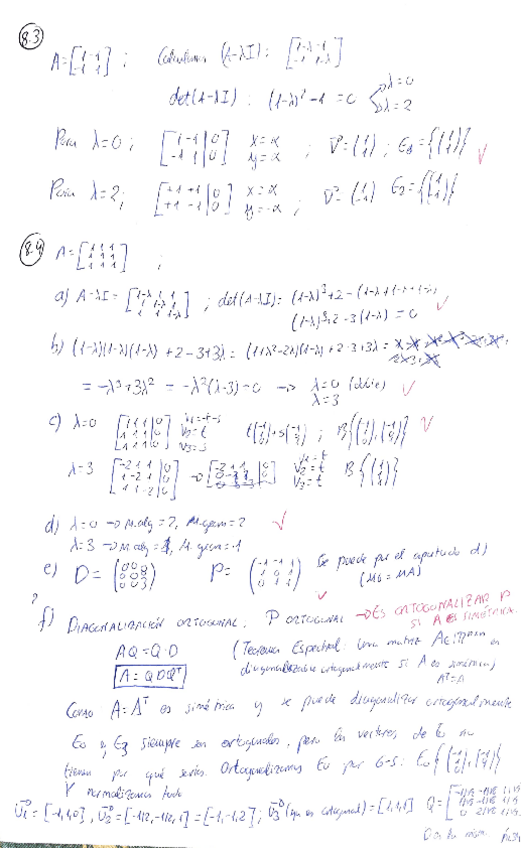 8.3
A = [1 -1; -1 1] ; Calculamos (A-λI): [1-λ -1; -1 1-λ]
det(A-λI): (1-λ)² - 1 = 0 λ=0 λ=2
Para λ=0; [1 -1 | 0; -1 1 | 0] x=α y=α ; V=(1 1) ; E₀={(1 1)}
Para λ=2; [+1 +1 | 0; +1 -1 | 0] x=α y=-α ; V=(1 -1) E₂={(1 -1)}
8.4
A = [1 1 1; 1 1 1; 1 1 1] ;
a) A-λI = [1-λ 1 1; 1 1-λ 1; 1 1 1-λ] ; det(A-λI): (1-λ)³+2-(1-λ+1-λ+1-λ)
(1-λ)³+2-3(1-λ)=0
b) (1-λ)(1-λ)(1-λ)+2-3+3λ = (1+λ²-2λ)(1-λ)+2-3+3λ =
= -λ³+3λ² = -λ²(λ-3)=0 → λ=0 (doble)
λ=3
c) λ=0 [1 1 1 | 0; 1 1 1 | 0; 1 1 1 | 0] V₁=-t-s V₂=t V₃=s t(-1 1 0)+s(-1 0 1) ; B{(-1 1 0),(-1 0 1)}
λ=3 [-2 1 1 | 0; 1 -2 1 | 0; 1 1 -2 | 0] → V₂=t V₃=t B{(1 1 1)}
d) λ=0 → M.alg=2, M.geom=2
λ=3 → M.alg=1, M.geom=1
e) D=(0 0 0; 0 0 0; 0 0 3) P=(-1 -1 1; 1 0 1; 0 1 1) Se puede por el apartado d)
(MG=MA)
?
f) DIAGONALIZACIÓN ORTOGONAL: P ORTOGONAL → ES ORTOGONALIZAR P
SI A ES SIMÉTRICA.
AQ=Q·D (Teorema Espectral: Una matriz A∈ℝⁿˣⁿ es
A=QDQᵀ diagonalizable ortogonalmente si A es simétrica)
Aᵀ=A
Como A=Aᵀ es simétrica y se puede diagonalizar ortogonalmente
E₀ y E₃ siempre son ortogonales, pero los vectores de E₀ no
tienen por qué serlo. Ortogonalizamos E₀ por G-S: E₀{(-1 1 0),(-1 0 1)}
Y normalizamos todo
U₁=[-1,1,0], U₂=[-1/2,-1/2,1]=[-1,-1,2]; U₃ (ya es ortogonal)=[1,1,1] Q=